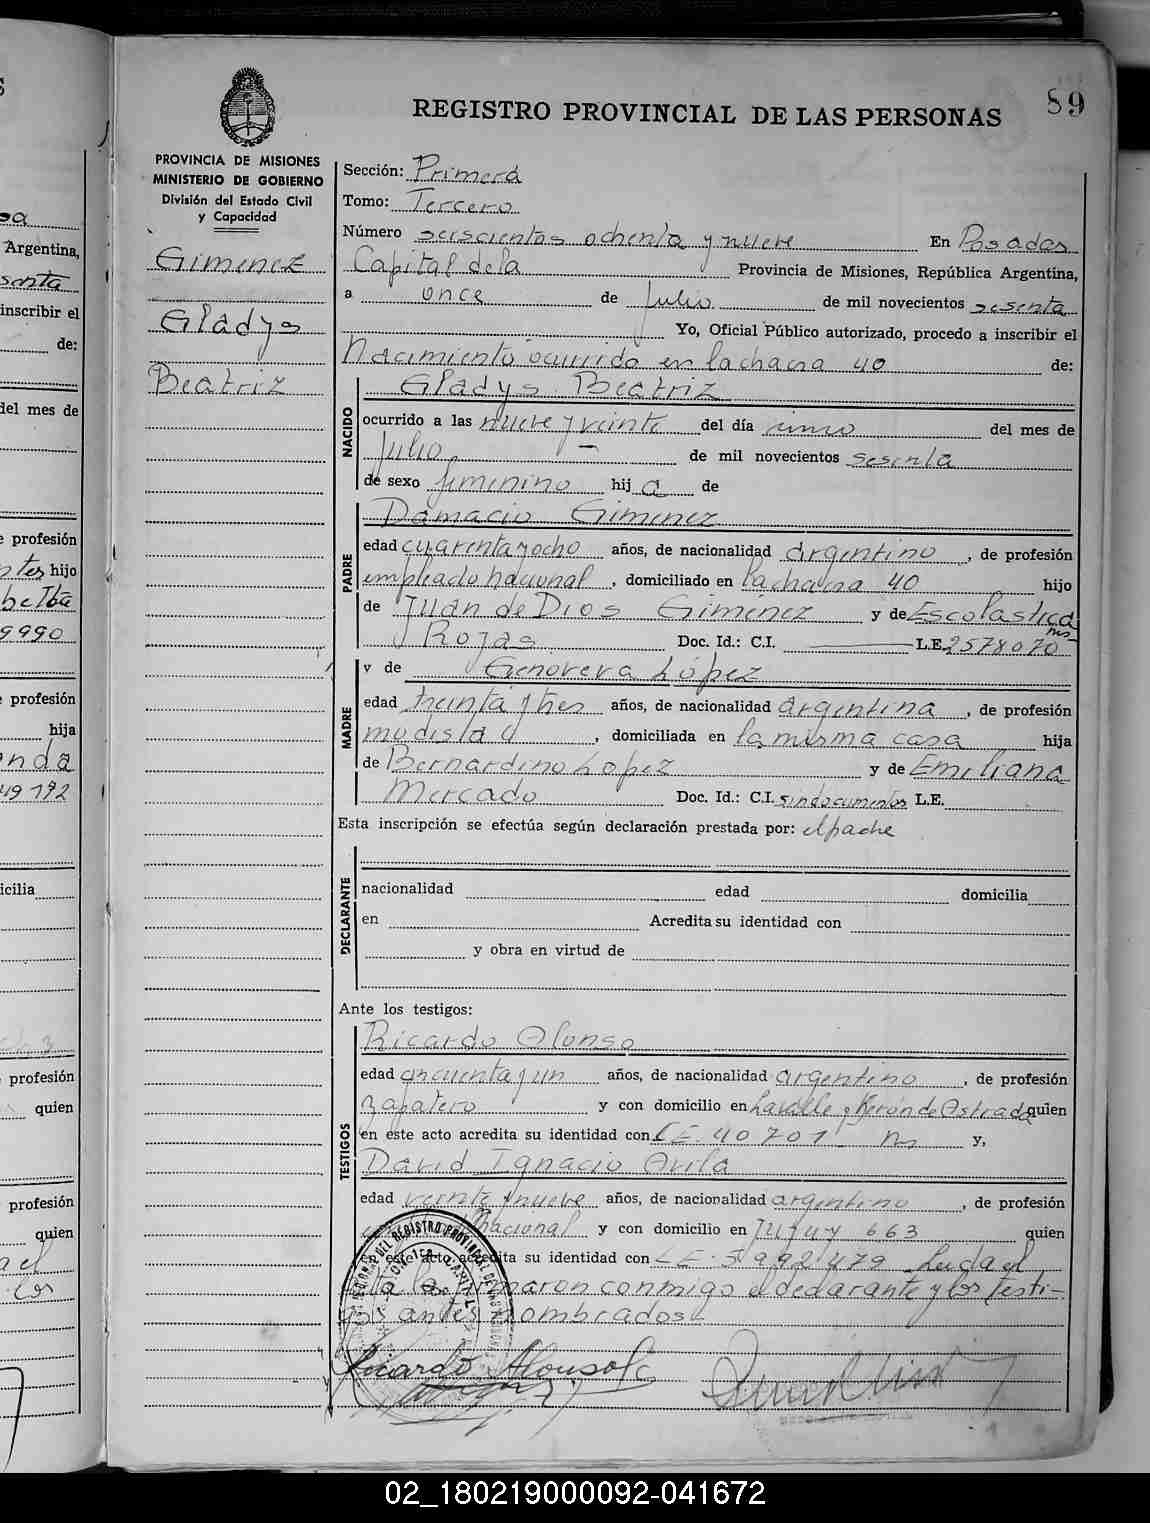 REGISTRO PROVINCIAL DE LAS PERSONAS
89
PROVINCIA DE MISIONES
MINISTERIO DE GOBIERNO
División del Estado Civil
y Capacidad
Gimenez
Gladys
Beatriz
Sección: Primera
Tomo: Tercero
Número seiscientos ochenta y nueve En Posadas
Capital de la Provincia de Misiones, República Argentina,
a once de Julio de mil novecientos sesenta
Yo, Oficial Público autorizado, procedo a inscribir el
Nacimiento ocurrido en la chacra 40 de:
NACIDO
Gladys Beatriz
ocurrido a las nueve y veinte del día del mes de
Julio de mil novecientos sesenta
de sexo femenino hij a de
PADRE
Damacio Gimenez
edad cuarenta y ocho años, de nacionalidad argentino, de profesión
empleado nacional, domiciliado en la chacra 40 hijo
de Juan de Dios Gimenez y de Escolastica
Rojas Doc. Id.: C.I. L.E. 2578070
MADRE
y de Genoveva López
edad treinta y tres años, de nacionalidad argentina, de profesión
modista, domiciliada en la misma casa hija
de Bernardino Lopez y de Emiliana
Mercado Doc. Id.: C.I. sin documentos L.E.
Esta inscripción se efectúa según declaración prestada por: el padre
DECLARANTE
nacionalidad edad domicilia
en Acredita su identidad con
y obra en virtud de
Ante los testigos:
TESTIGOS
Ricardo Alonso
edad cincuenta y un años, de nacionalidad argentino, de profesión
zapatero y con domicilio en Lavalle y Berón de Astrada quien
en este acto acredita su identidad con L.E. 40701 y,
David Ignacio Avila
edad veinte y nueve años, de nacionalidad argentino, de profesión
nacional y con domicilio en Jujuy 663 quien
acto acredita su identidad con L.E. 5992479 Leida el
acta la firmaron conmigo el declarante y los testi-
gos antes nombrados
Ricardo Alonso
Argentina,
inscribir el
de:
del mes de
profesión
hijo
9990
profesión
hija
49192
icilia
profesión
quien
profesión
quien
02_180219000092-041672